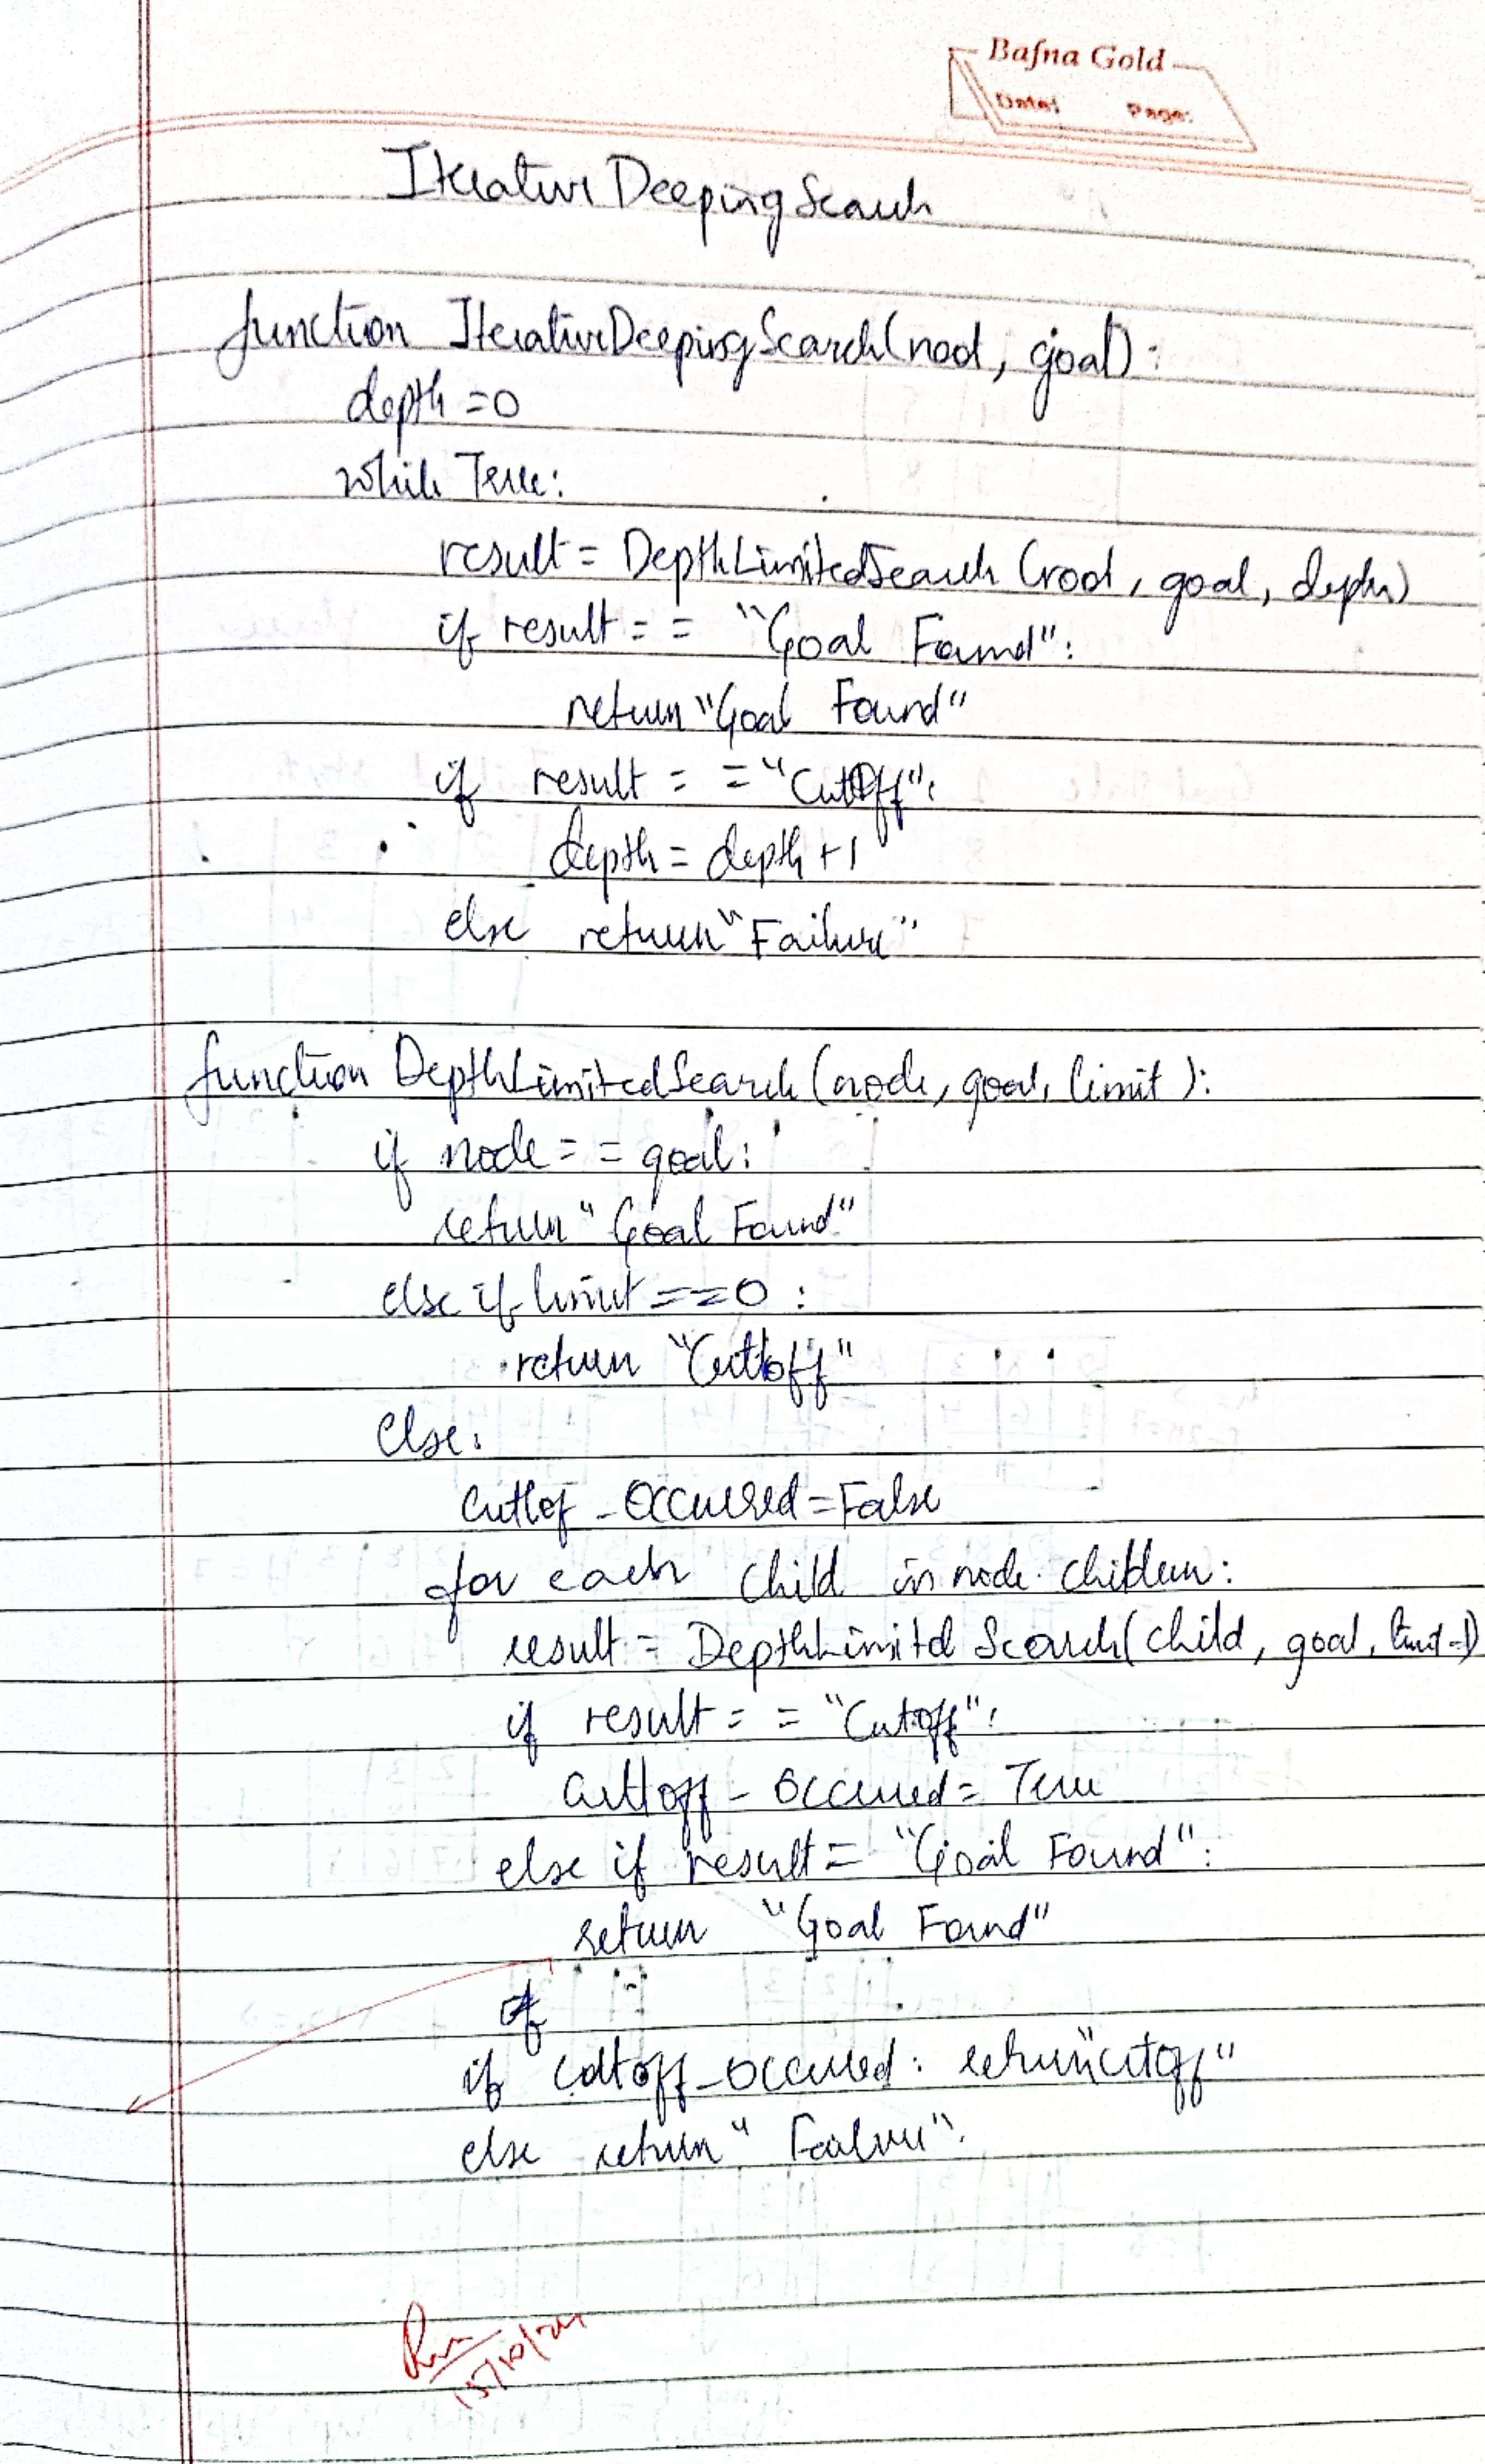 Bafna Gold
Date: Page:
Iterative Deeping Search
function IterativeDeepingSearch(root, goal):
depth = 0
while True:
result = DepthLimitedSearch (root, goal, depth)
if result = = "Goal Found":
return "Goal Found"
if result = = "CuttOff":
depth = depth + 1
else return "Failure"
function DepthLimitedSearch (node, goal, limit ):
if node = = goal:
return "Goal Found"
else if limit == 0 :
return "Cuttoff"
Else:
Cuttof _ Occurred = False
for each child in node. children:
result = DepthLimitd Search(child, goal, limit-1)
if result = = "Cutoff":
Cuttoff _ occured = True
else if result = "Goal Found":
return "Goal Found"
if cuttoff_occured : return "cutoff"
else return "Failure".
15/10/24